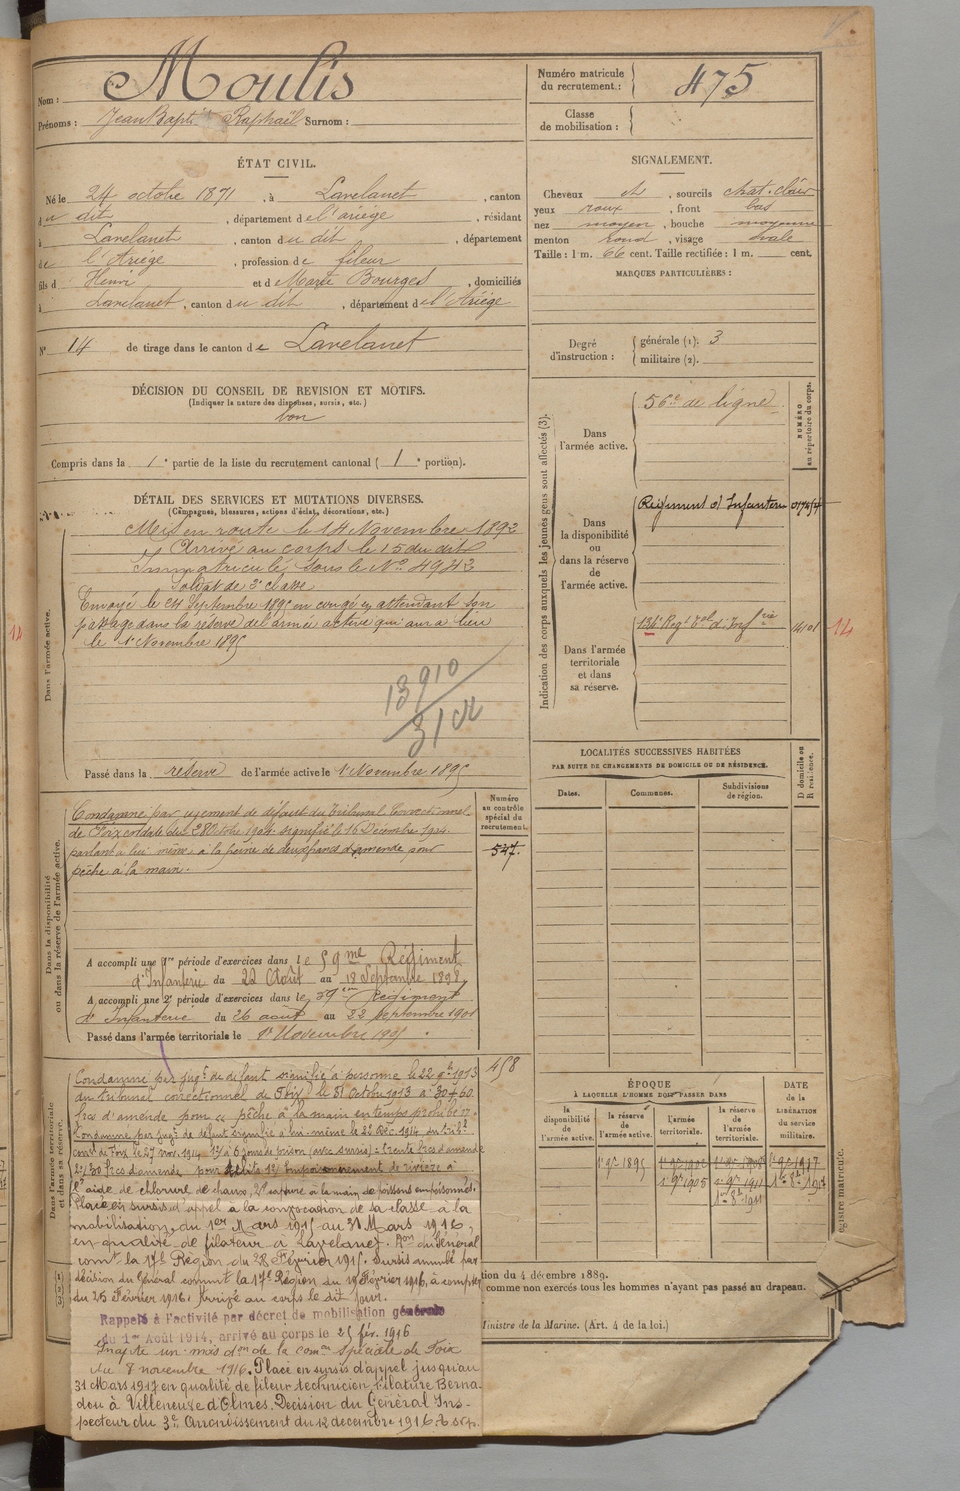 Nom : Moulis
Prénoms : Jean Bapti Raphaël Surnom :
Numéro matricule du recrutement : 475
Classe de mobilisation :
ÉTAT CIVIL.
Né le 24 octobre 1871, à Lavelanet, canton
du dit, département de l'ariége, résidant
à Lavelanet, canton du dit, département
de l'Ariége, profession de fileur
fils d Henri et d Marie Bourges, domiciliés
à Lavelanet, canton du dit, département de l'Ariége
N° 14 de tirage dans le canton de Lavelanet
SIGNALEMENT.
Cheveux et, sourcils chat. clair
yeux roux, front bas
nez moyen, bouche moyenne
menton rond, visage ovale
Taille : 1 m. 66 cent. Taille rectifiée : 1 m. cent.
MARQUES PARTICULIÈRES :
Degré d'instruction : générale (1). 3
militaire (2).
DÉCISION DU CONSEIL DE REVISION ET MOTIFS.
(Indiquer la nature des dispenses, sursis, etc.)
bon
Compris dans la 1e partie de la liste du recrutement cantonal (1 portion).
DÉTAIL DES SERVICES ET MUTATIONS DIVERSES.
(Campagnes, blessures, actions d'éclat, décorations, etc.)
Dans l'armée active.
Mis en route le 14 Novembre 1892
Arrivé au corps le 15 du dit
Immatriculé sous le No 4943
Soldat de 2e classe
Envoyé le 24 Septembre 1895 en congé en attendant son
passage dans la réserve de l'armée active qui aura lieu
le 1 Novembre 1895
13910
Passé dans la reserve de l'armée active le 1 Novembre 1895
Indication des corps auxquels les jeunes gens sont affectés (3).
NUMÉRO au répertoire du corps.
Dans l'armée active.
56e de ligne
Dans la disponibilité ou dans la réserve de l'armée active.
Régiment d'Infanterie
Dans l'armée territoriale et dans sa réserve.
134e Regt Tal d'Infrie
14
LOCALITÉS SUCCESSIVES HABITÉES
PAR SUITE DE CHANGEMENTS DE DOMICILE OU DE RÉSIDENCE.
D domicile ou R résidence.
Dates. Communes. Subdivisions de région.
Dans la disponibilité ou dans la réserve de l'armée active.
Numéro au contrôle spécial du recrutement.
547.
Condamné par jugement de défaut du Tribunal Correctionnel
de Foix en date du 28 Octobre 1904 signifié le 16 Décembre 1904
parlant à lui même, à la peine de deux francs d'amende pour
pêche à la main.
A accompli une 1re période d'exercices dans le 59me Régiment
d'Infanterie du 22 Août au 18 Septembre 1898
A accompli une 2e période d'exercices dans le 59e Régiment
d'Infanterie du 26 août au 22 septembre 1901
Passé dans l'armée territoriale le 1r Novembre 1905
Dans l'armée territoriale et dans sa réserve.
458
Condamné par jugt de défaut signifié à personne le 22 9bre 1913
du tribunal correctionnel de Foix le 31 Octobre 1913 à 30 + 60
frcs d'amende pour pêche à la main en temps prohibé
Condamné par jugt de défaut signifié à lui-même le 22 déc. 1914 du tribl
corrl de Foix le 27 nov. 1914 1°/ à 6 jours de prison (avec sursis) + trente frcs d'amende
2°/ 30 frcs d'amende pour délits 1°/ Empoisonnement de rivière à
l'aide de chlorure de chaux, 2°/ capture à la main de poissons empoisonnés.
Placé en sursis d'appel à la convocation de sa classe à la
mobilisation, du 1er Mars 1915 au 31 Mars 1916,
en qualité de filateur à Lavelanet. Don du Général
comt la 17e Région du 28 Février 1915. Sursis annulé par
décision du Général commt la 17e Région du 19 Février 1916, à compter
du 25 Février 1916. Arrivé au corps le dit jour.
Rappelé à l'activité par décret de mobilisation générale
du 1er Août 1914, arrivé au corps le 25 fév. 1916
Inapte un mois don de la comon spéciale de Foix
du 8 novembre 1916. Placé en sursis d'appel jusqu'au
31 Mars 1917 en qualité de fileur technicien, Filature Berna-
dou à Villeneuve d'Olmes. Décision du Général Ins-
pecteur du 3e Arrondissement du 12 décembre 1916.
ÉPOQUE
À LAQUELLE L'HOMME DOIT PASSER DANS
la disponibilité de l'armée active. la réserve de l'armée active. l'armée territoriale. la réserve de l'armée territoriale.
DATE de la LIBÉRATION du service militaire.
1 9bre 1895
1r 9bre 1905
1r 9bre 1911
1r 9bre 1917
registre matricule.
tion du 4 décembre 1889.
comme non exercés tous les hommes n'ayant pas passé au drapeau.
Ministre de la Marine. (Art. 4 de la loi.)